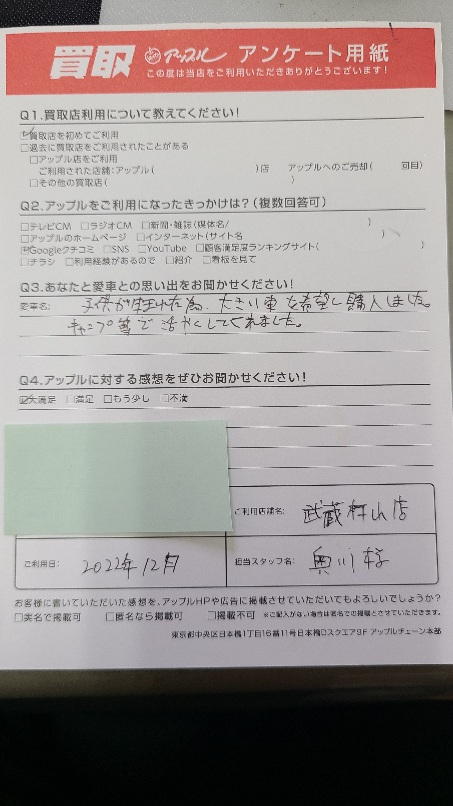 買取 アップル アンケート用紙
この度は当店をご利用いただきありがとうございます!
Q1.買取店利用について教えてください!
☑買取店を初めてご利用
□過去に買取店をご利用されたことがある
□アップル店をご利用
ご利用された店舗:アップル( )店 アップルへのご売却( 回目)
□その他の買取店( )
Q2.アップルをご利用になったきっかけは?(複数回答可)
□テレビCM □ラジオCM □新聞・雑誌(媒体名/ )
□アップルのホームページ □インターネット(サイト名 )
☑Googleクチコミ □SNS □YouTube □顧客満足度ランキングサイト( )
□チラシ □利用経験があるので □紹介 □看板を見て
Q3.あなたと愛車との思い出をお聞かせください!
愛車名: 子供が生まれた為、大きい車を希望し購入しました。
キャンプ等で活やくしてくれました。
Q4.アップルに対する感想をぜひお聞かせください!
☑大満足 □満足 □もう少し □不満
ご利用店舗名: 武蔵村山店
ご利用日: 2022年12月 担当スタッフ名: 奥川
お客様に書いていただいた感想を、アップルHPや広告に掲載させていただいてもよろしいでしょうか?
□実名で掲載可 □匿名なら掲載可 □掲載不可 ※ご記入がない場合は匿名での掲載とさせていただきます。
東京都中央区日本橋1丁目16番11号日本橋Dスクエア9F アップルチェーン本部